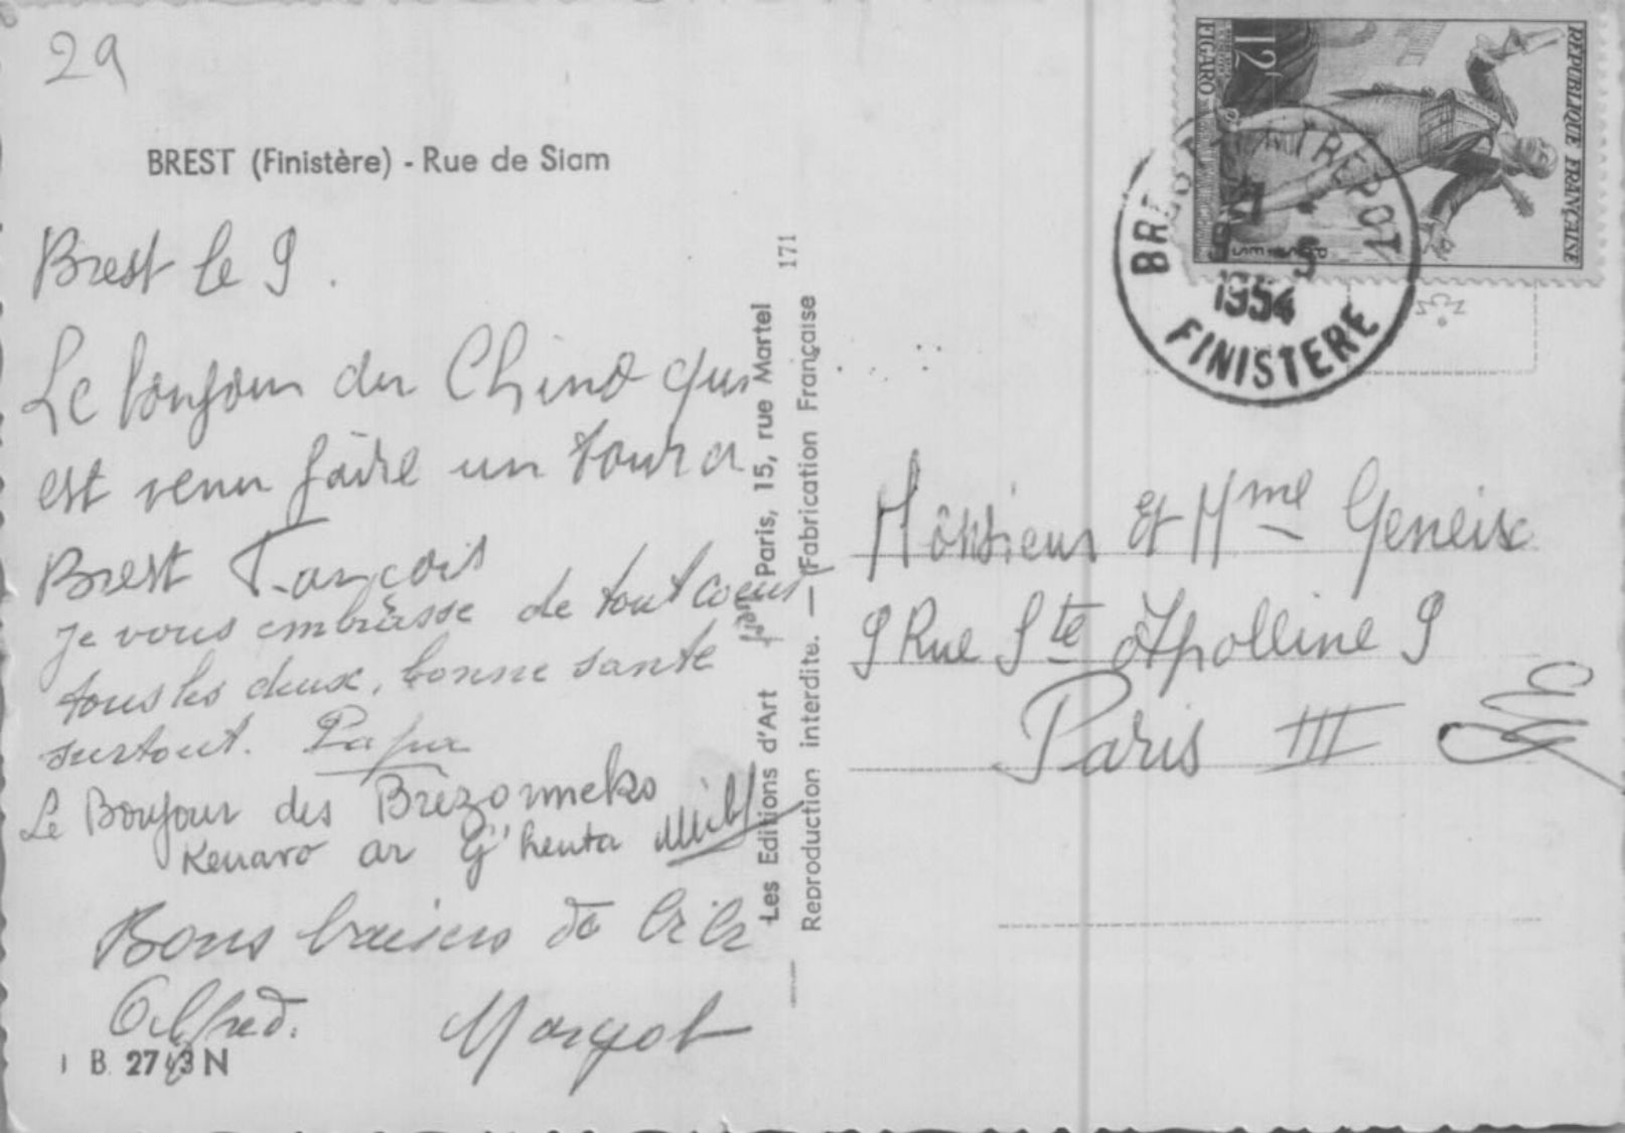 29
BREST (Finistère) - Rue de Siam
Brest le 9.
Le bonjour du Chino qui
est venu faire un tour a
Brest François
je vous embrasse de tout coeur
tous les deux, bonne santé
surtout. Papa
Le Bonjour des Brezonneks
Kenavo ar
Bons baisers de
Alfred. Margot
I B. 2743 N
Les Editions d'Art Paris, 15, rue Martel
Reproduction interdite. — Fabrication Française
171
RÉPUBLIQUE FRANÇAISE
12F
FIGARO
POSTES
BREST ENTREPOT
1954
FINISTERE
Monsieur et Mme Geneix
9 Rue Ste Apolline 9
Paris III